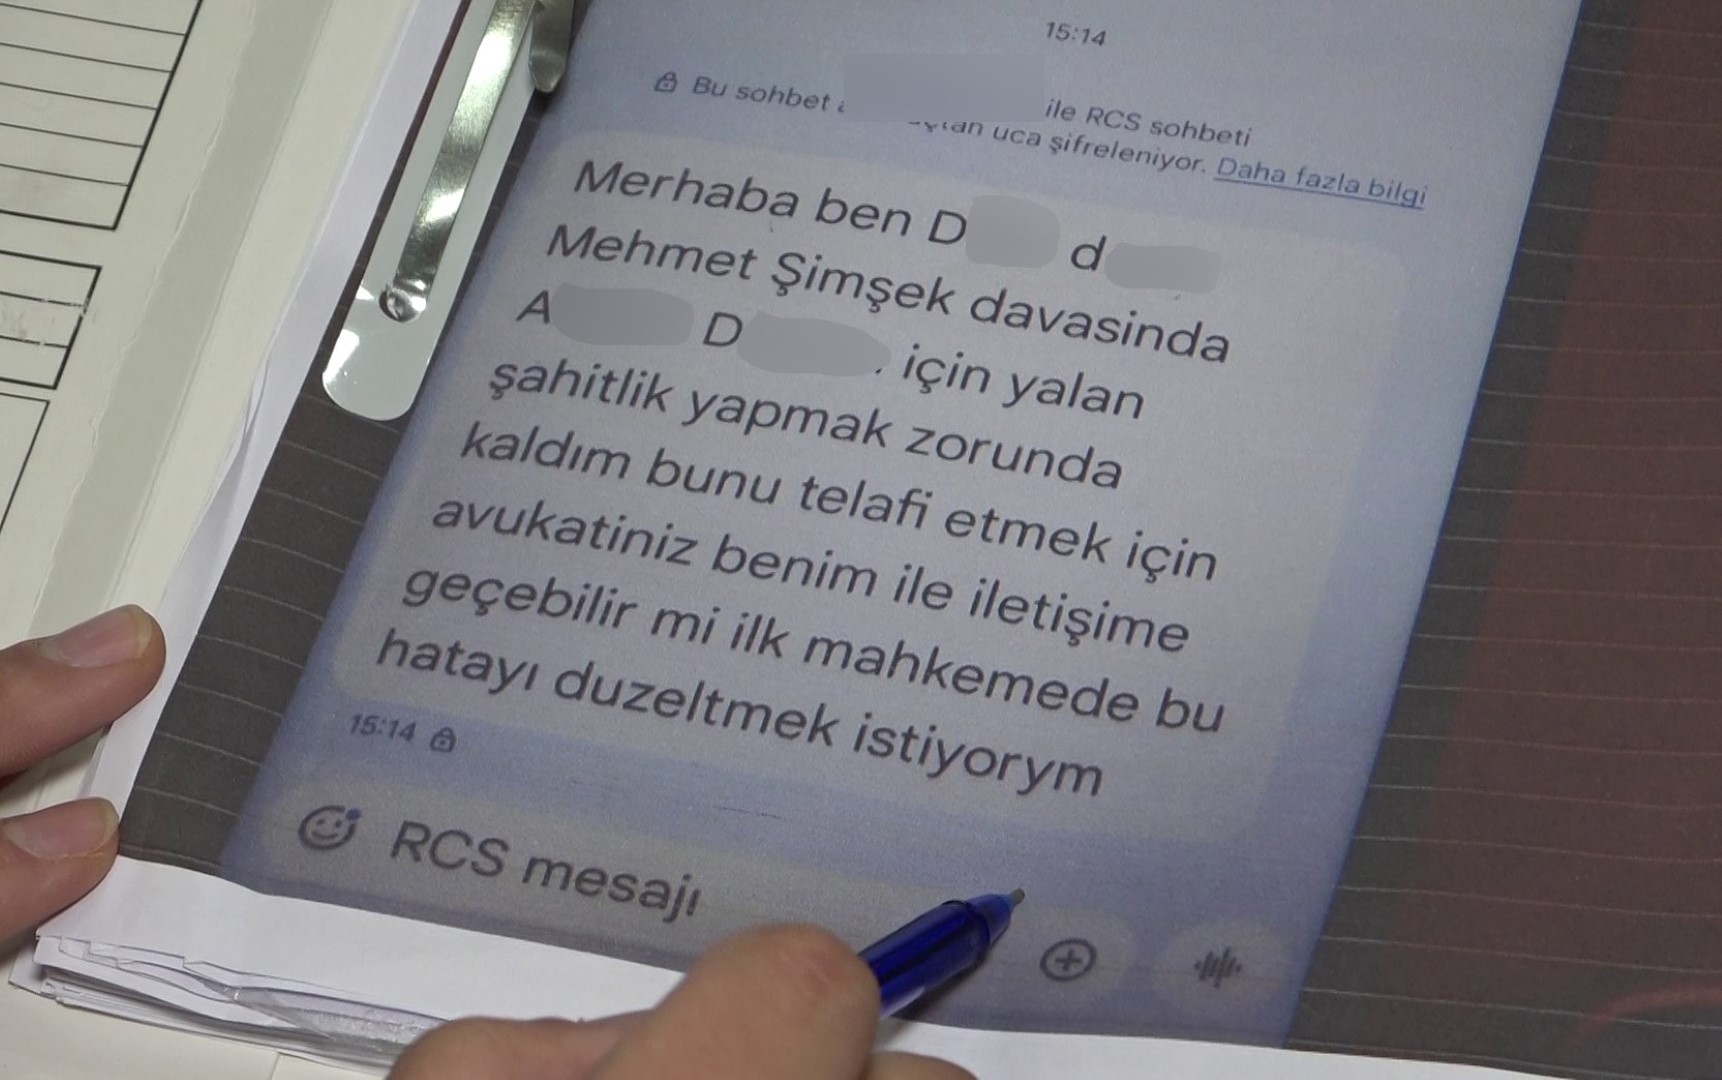 15:14
Bu sohbet ile RCS sohbeti
uca şifreleniyor. Daha fazla bilgi
Merhaba ben D d
Mehmet Şimşek davasinda
A D için yalan
şahitlik yapmak zorunda
kaldım bunu telafi etmek için
avukatiniz benim ile iletişime
geçebilir mi ilk mahkemede bu
hatayı duzeltmek istiyorym
15:14
RCS mesajı